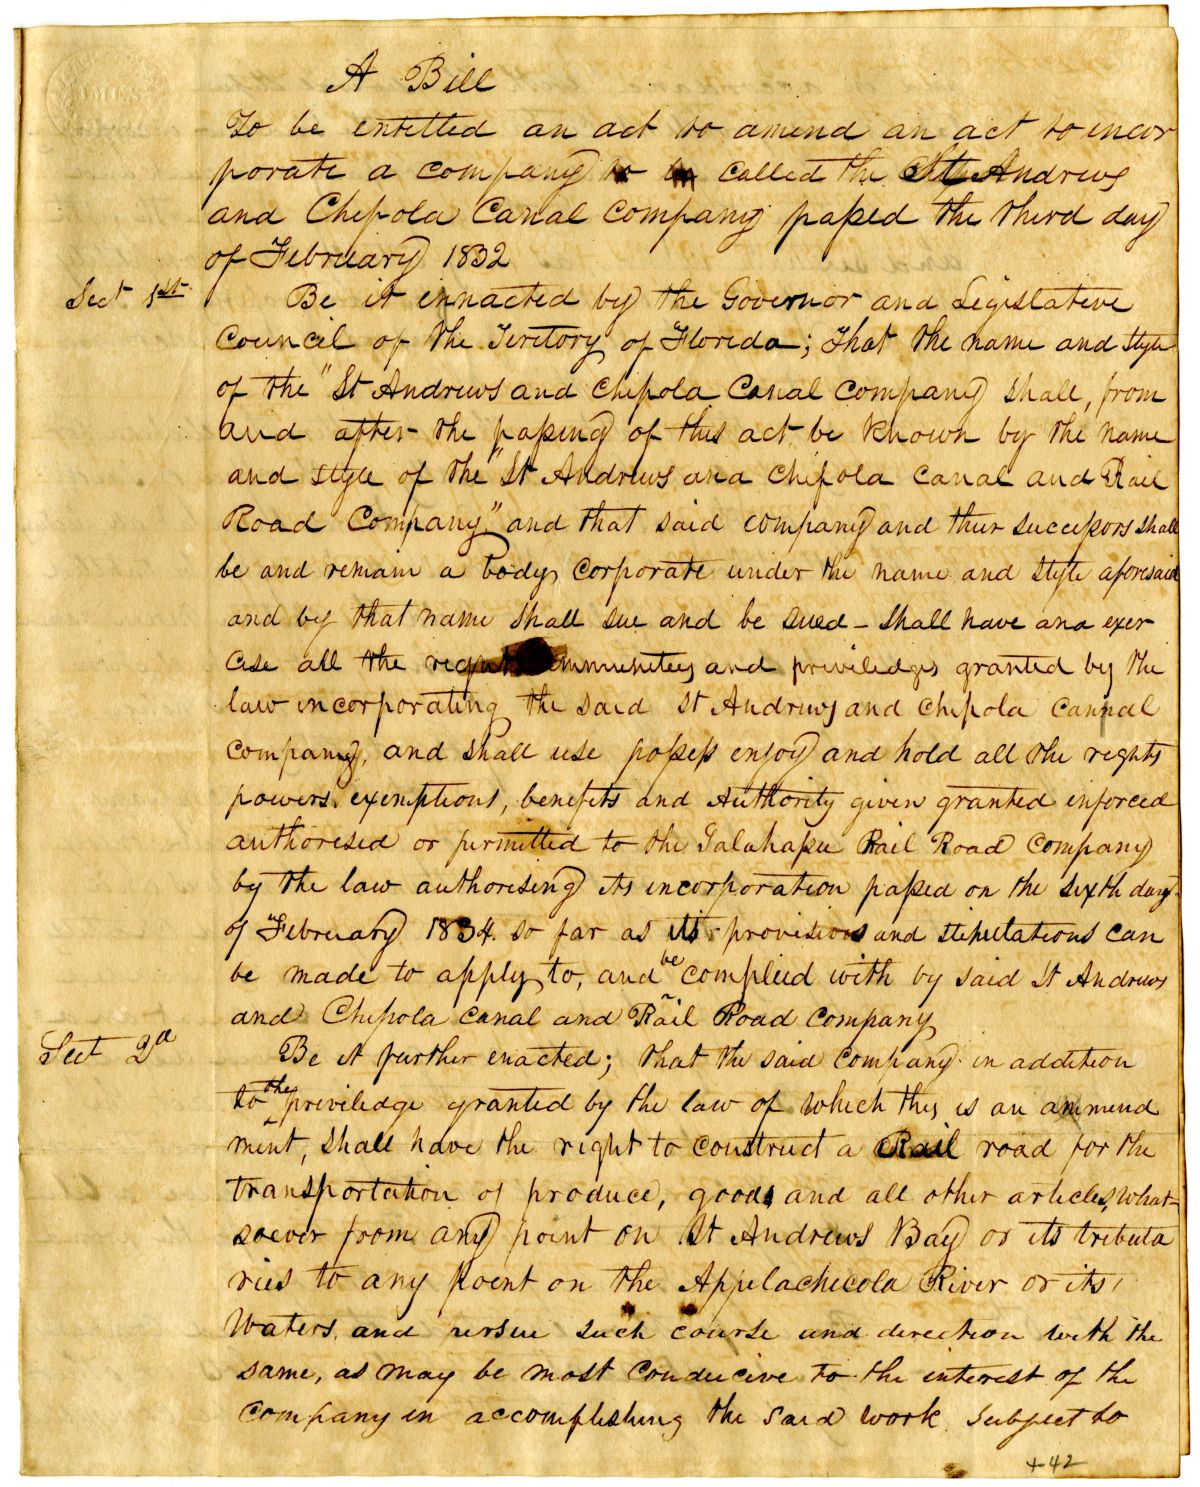 A Bill
To be entitled an act to amend an act to incor
porate a company to be called the St Andrews
and Chipola Canal Company passed the third day
of February 1832
Sect 1st Be it ennacted by the Governor and Legislative
Council of the Teritory of Florida; That the name and style
of the "St Andrews and Chipola Canal Company shall, from
and after the passing of this act be known by the name
and style of the "St Andrews and Chipola Canal and Rail
Road Company" and that said company and their successors shall
be and remain a body corporate under the name and style aforesaid
and by that name shall sue and be sued - shall have and exer
cise all the right immunities and priviledges granted by the
law incorporating the said St Andrews and Chipola Cannal
Company, and shall use possess enjoy and hold all the rights
powers, exemptions, benefits and Authority given granted inforced
authorised or permitted to the Talahassee Rail Road Company
by the law authorising its incorporation passed on the sixth day
of February 1834. so far as its provisions and stipulations can
be made to apply to, and be complied with by said St Andrews
and Chipola Canal and Rail Road Company
Sect 2d Be it further enacted; that the said Company in addition
to the priviledge granted by the law of which this is an ammend
ment, shall have the right to construct a Rail road for the
transportation of produce, goods and all other articles, what-
soever from any point on St Andrews Bay or its tributa
ries to any point on the Appelachicola River or its
Waters, and pursue such course and direction with the
same, as may be most conducive to the interest of the
Company in accomplishing the said work subject to
+42